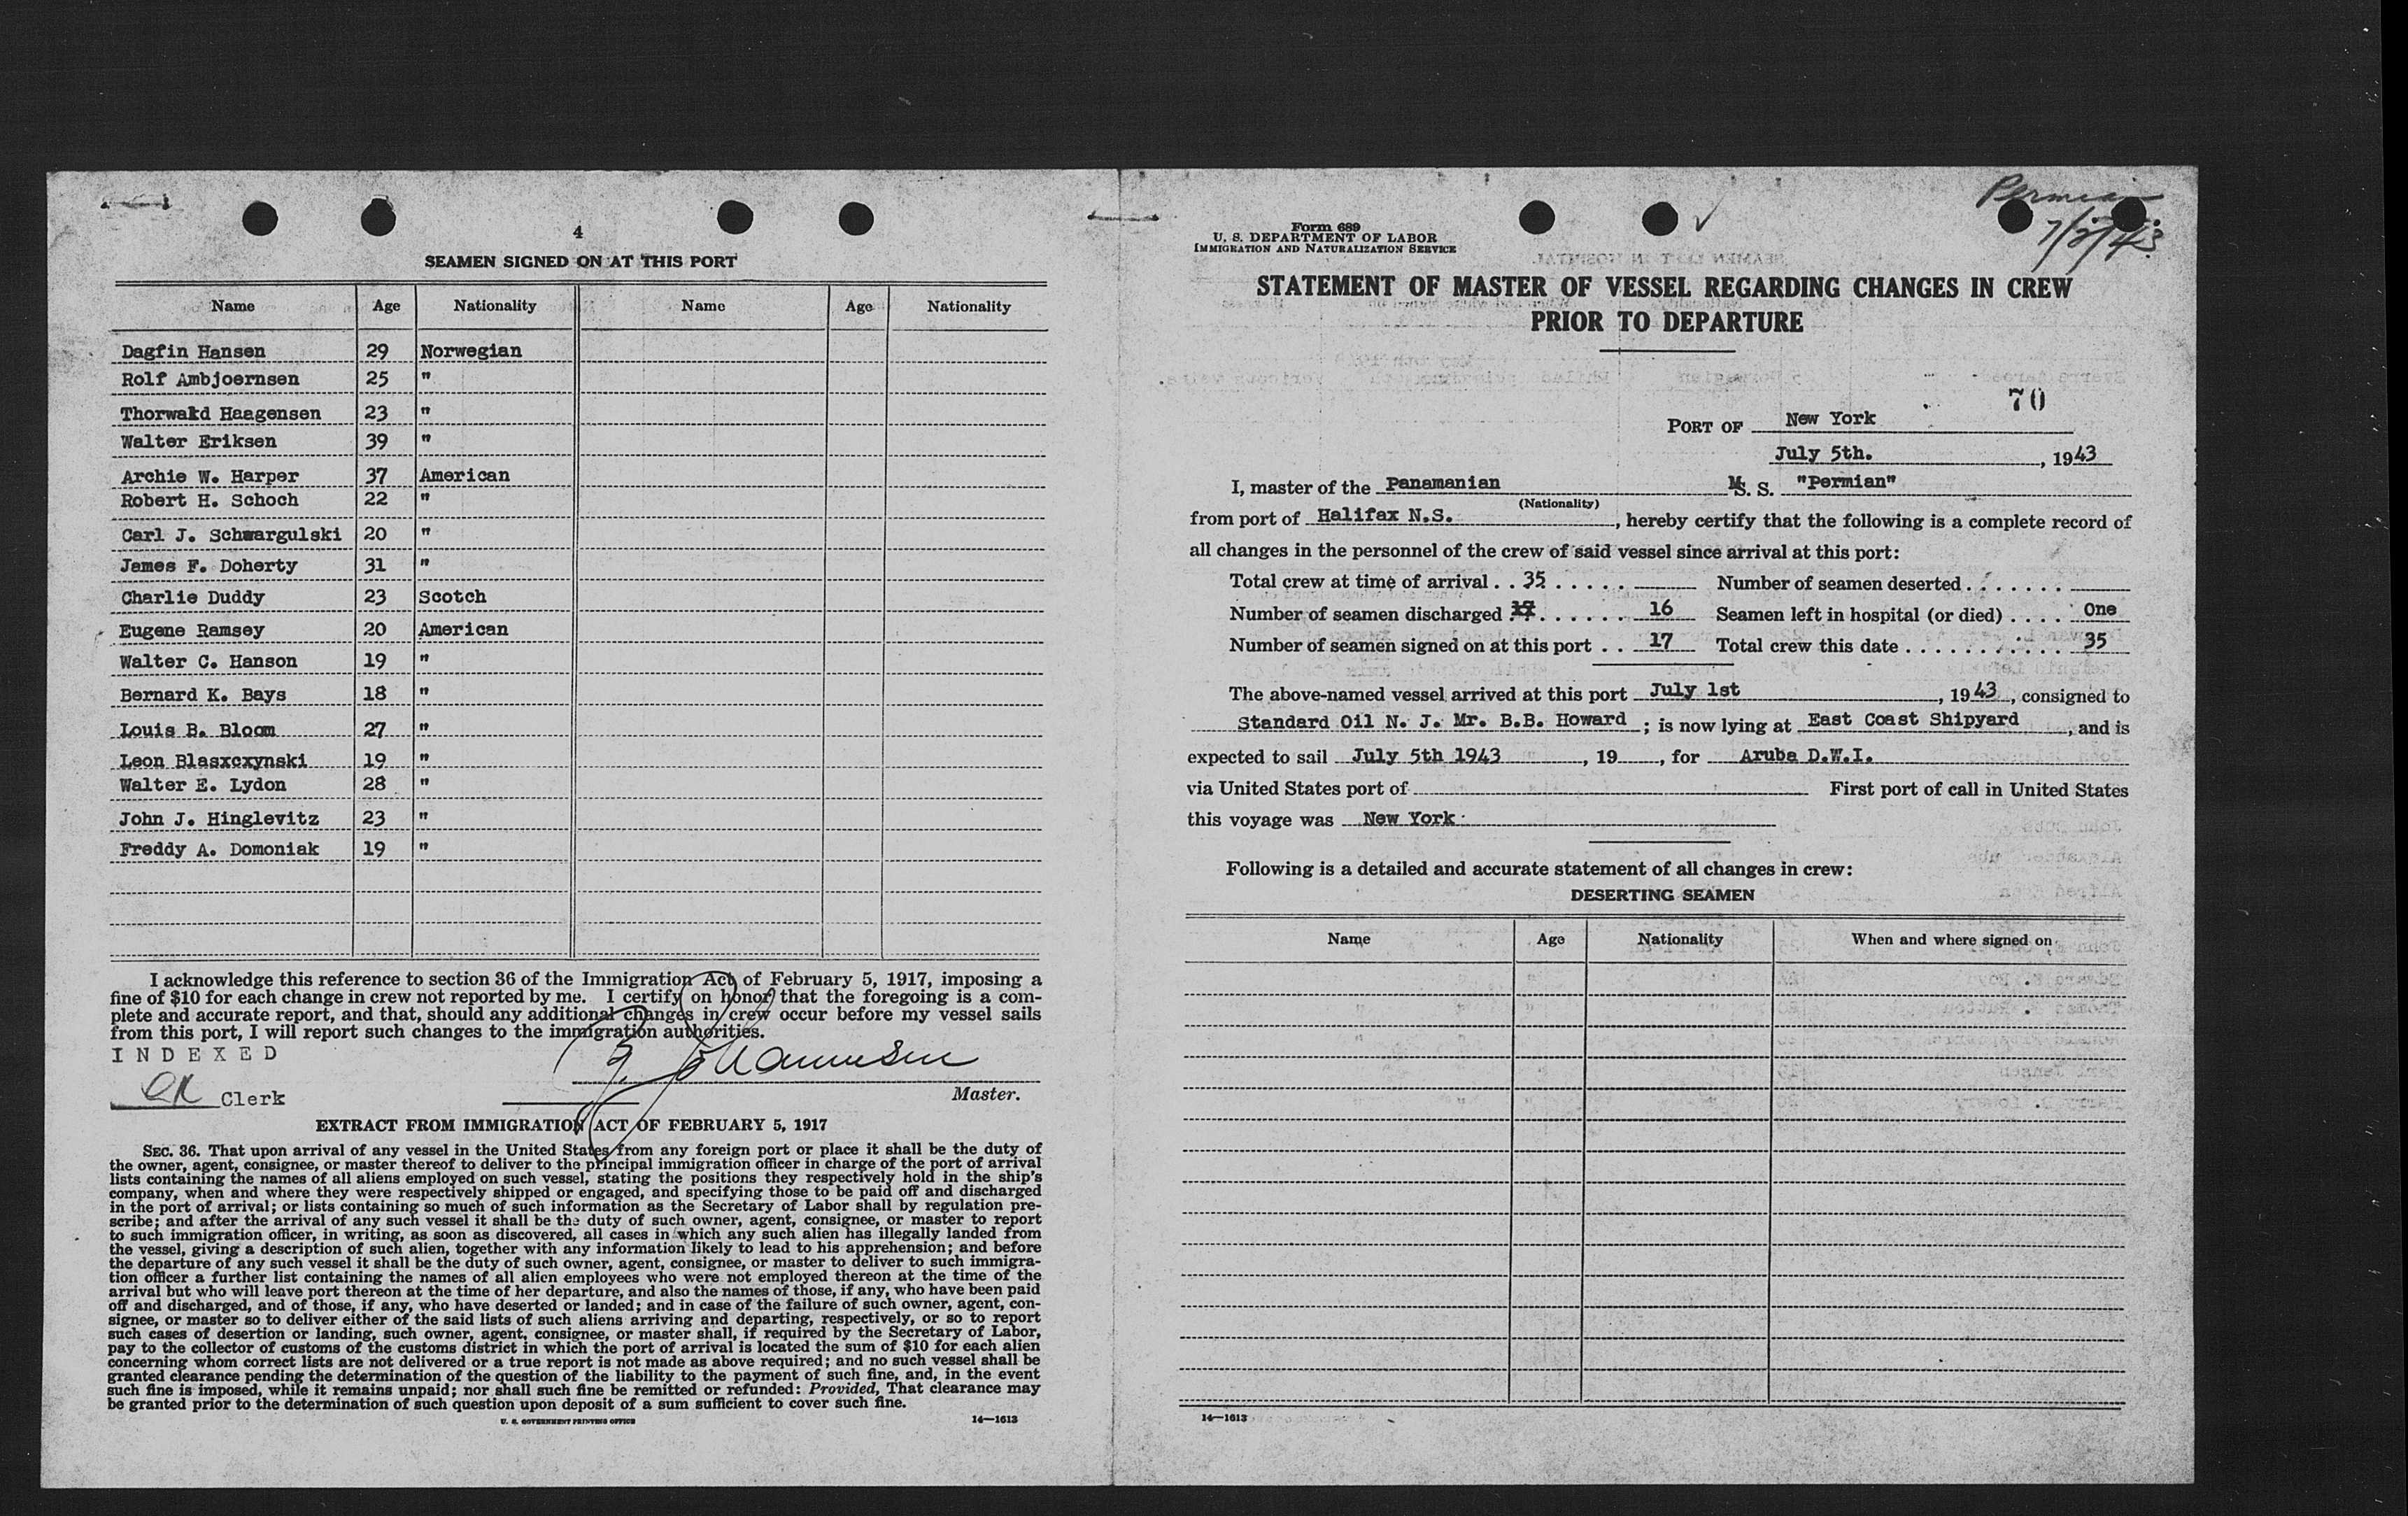 4
SEAMEN SIGNED ON AT THIS PORT
Name Age Nationality Name Age Nationality
Dagfin Hansen 29 Norwegian
Rolf Ambjoernsen 25 "
Thorwald Haagensen 23 "
Walter Eriksen 39 "
Archie W. Harper 37 American
Robert H. Schoch 22 "
Carl J. Schwargulski 20 "
James F. Doherty 31 "
Charlie Duddy 23 Scotch
Eugene Ramsey 20 American
Walter C. Hanson 19 "
Bernard K. Bays 18 "
Louis B. Bloom 27 "
Leon Blasxcxynski 19 "
Walter E. Lydon 28 "
John J. Hinglevitz 23 "
Freddy A. Domoniak 19 "
I acknowledge this reference to section 36 of the Immigration Act of February 5, 1917, imposing a
fine of $10 for each change in crew not reported by me. I certify on honor that the foregoing is a com-
plete and accurate report, and that, should any additional changes in crew occur before my vessel sails
from this port, I will report such changes to the immigration authorities.
INDEXED
Clerk
Master.
EXTRACT FROM IMMIGRATION ACT OF FEBRUARY 5, 1917
SEC. 36. That upon arrival of any vessel in the United States from any foreign port or place it shall be the duty of
the owner, agent, consignee, or master thereof to deliver to the principal immigration officer in charge of the port of arrival
lists containing the names of all aliens employed on such vessel, stating the positions they respectively hold in the ship's
company, when and where they were respectively shipped or engaged, and specifying those to be paid off and discharged
in the port of arrival; or lists containing so much of such information as the Secretary of Labor shall by regulation pre-
scribe; and after the arrival of any such vessel it shall be the duty of such owner, agent, consignee, or master to report
to such immigration officer, in writing, as soon as discovered, all cases in which any such alien has illegally landed from
the vessel, giving a description of such alien, together with any information likely to lead to his apprehension; and before
the departure of any such vessel it shall be the duty of such owner, agent, consignee, or master to deliver to such immigra-
tion officer a further list containing the names of all alien employees who were not employed thereon at the time of the
arrival but who will leave port thereon at the time of her departure, and also the names of those, if any, who have been paid
off and discharged, and of those, if any, who have deserted or landed; and in case of the failure of such owner, agent, con-
signee, or master so to deliver either of the said lists of such aliens arriving and departing, respectively, or so to report
such cases of desertion or landing, such owner, agent, consignee, or master shall, if required by the Secretary of Labor,
pay to the collector of customs of the customs district in which the port of arrival is located the sum of $10 for each alien
concerning whom correct lists are not delivered or a true report is not made as above required; and no such vessel shall be
granted clearance pending the determination of the question of the liability to the payment of such fine, and, in the event
such fine is imposed, while it remains unpaid; nor shall such fine be remitted or refunded: Provided, That clearance may
be granted prior to the determination of such question upon deposit of a sum sufficient to cover such fine.
U. S. GOVERNMENT PRINTING OFFICE 14—1613
Permian
Form 689
U. S. DEPARTMENT OF LABOR
IMMIGRATION AND NATURALIZATION SERVICE
STATEMENT OF MASTER OF VESSEL REGARDING CHANGES IN CREW
PRIOR TO DEPARTURE
70
PORT OF New York
July 5th. , 1943
I, master of the Panamanian M. S. "Permian"
(Nationality)
from port of Halifax N.S. , hereby certify that the following is a complete record of
all changes in the personnel of the crew of said vessel since arrival at this port:
Total crew at time of arrival . . 35 . . . . . Number of seamen deserted . . . . . . . .
Number of seamen discharged 17 . . . . . . 16 Seamen left in hospital (or died) . . . . One
Number of seamen signed on at this port . . 17 Total crew this date . . . . . . . . . . . 35
The above-named vessel arrived at this port July 1st , 1943 , consigned to
Standard Oil N. J. Mr. B.B. Howard ; is now lying at East Coast Shipyard , and is
expected to sail July 5th 1943 , 19 , for Aruba D.W.I.
via United States port of First port of call in United States
this voyage was New York
Following is a detailed and accurate statement of all changes in crew:
DESERTING SEAMEN
Name Age Nationality When and where signed on
14—1613